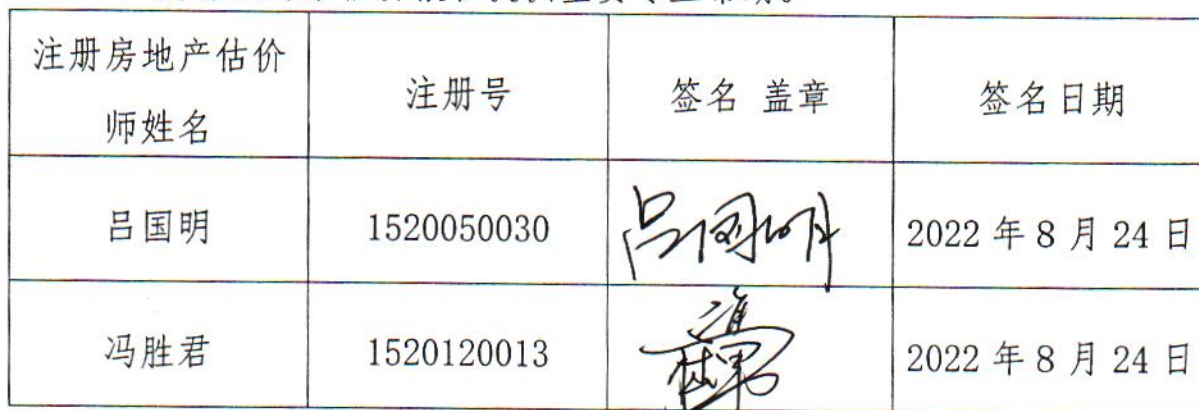 注册房地产估价
师姓名
注册号
签名 盖章
签名日期
吕国明
1520050030
吕国明
2022 年 8 月 24 日
冯胜君
1520120013
2022 年 8 月 24 日